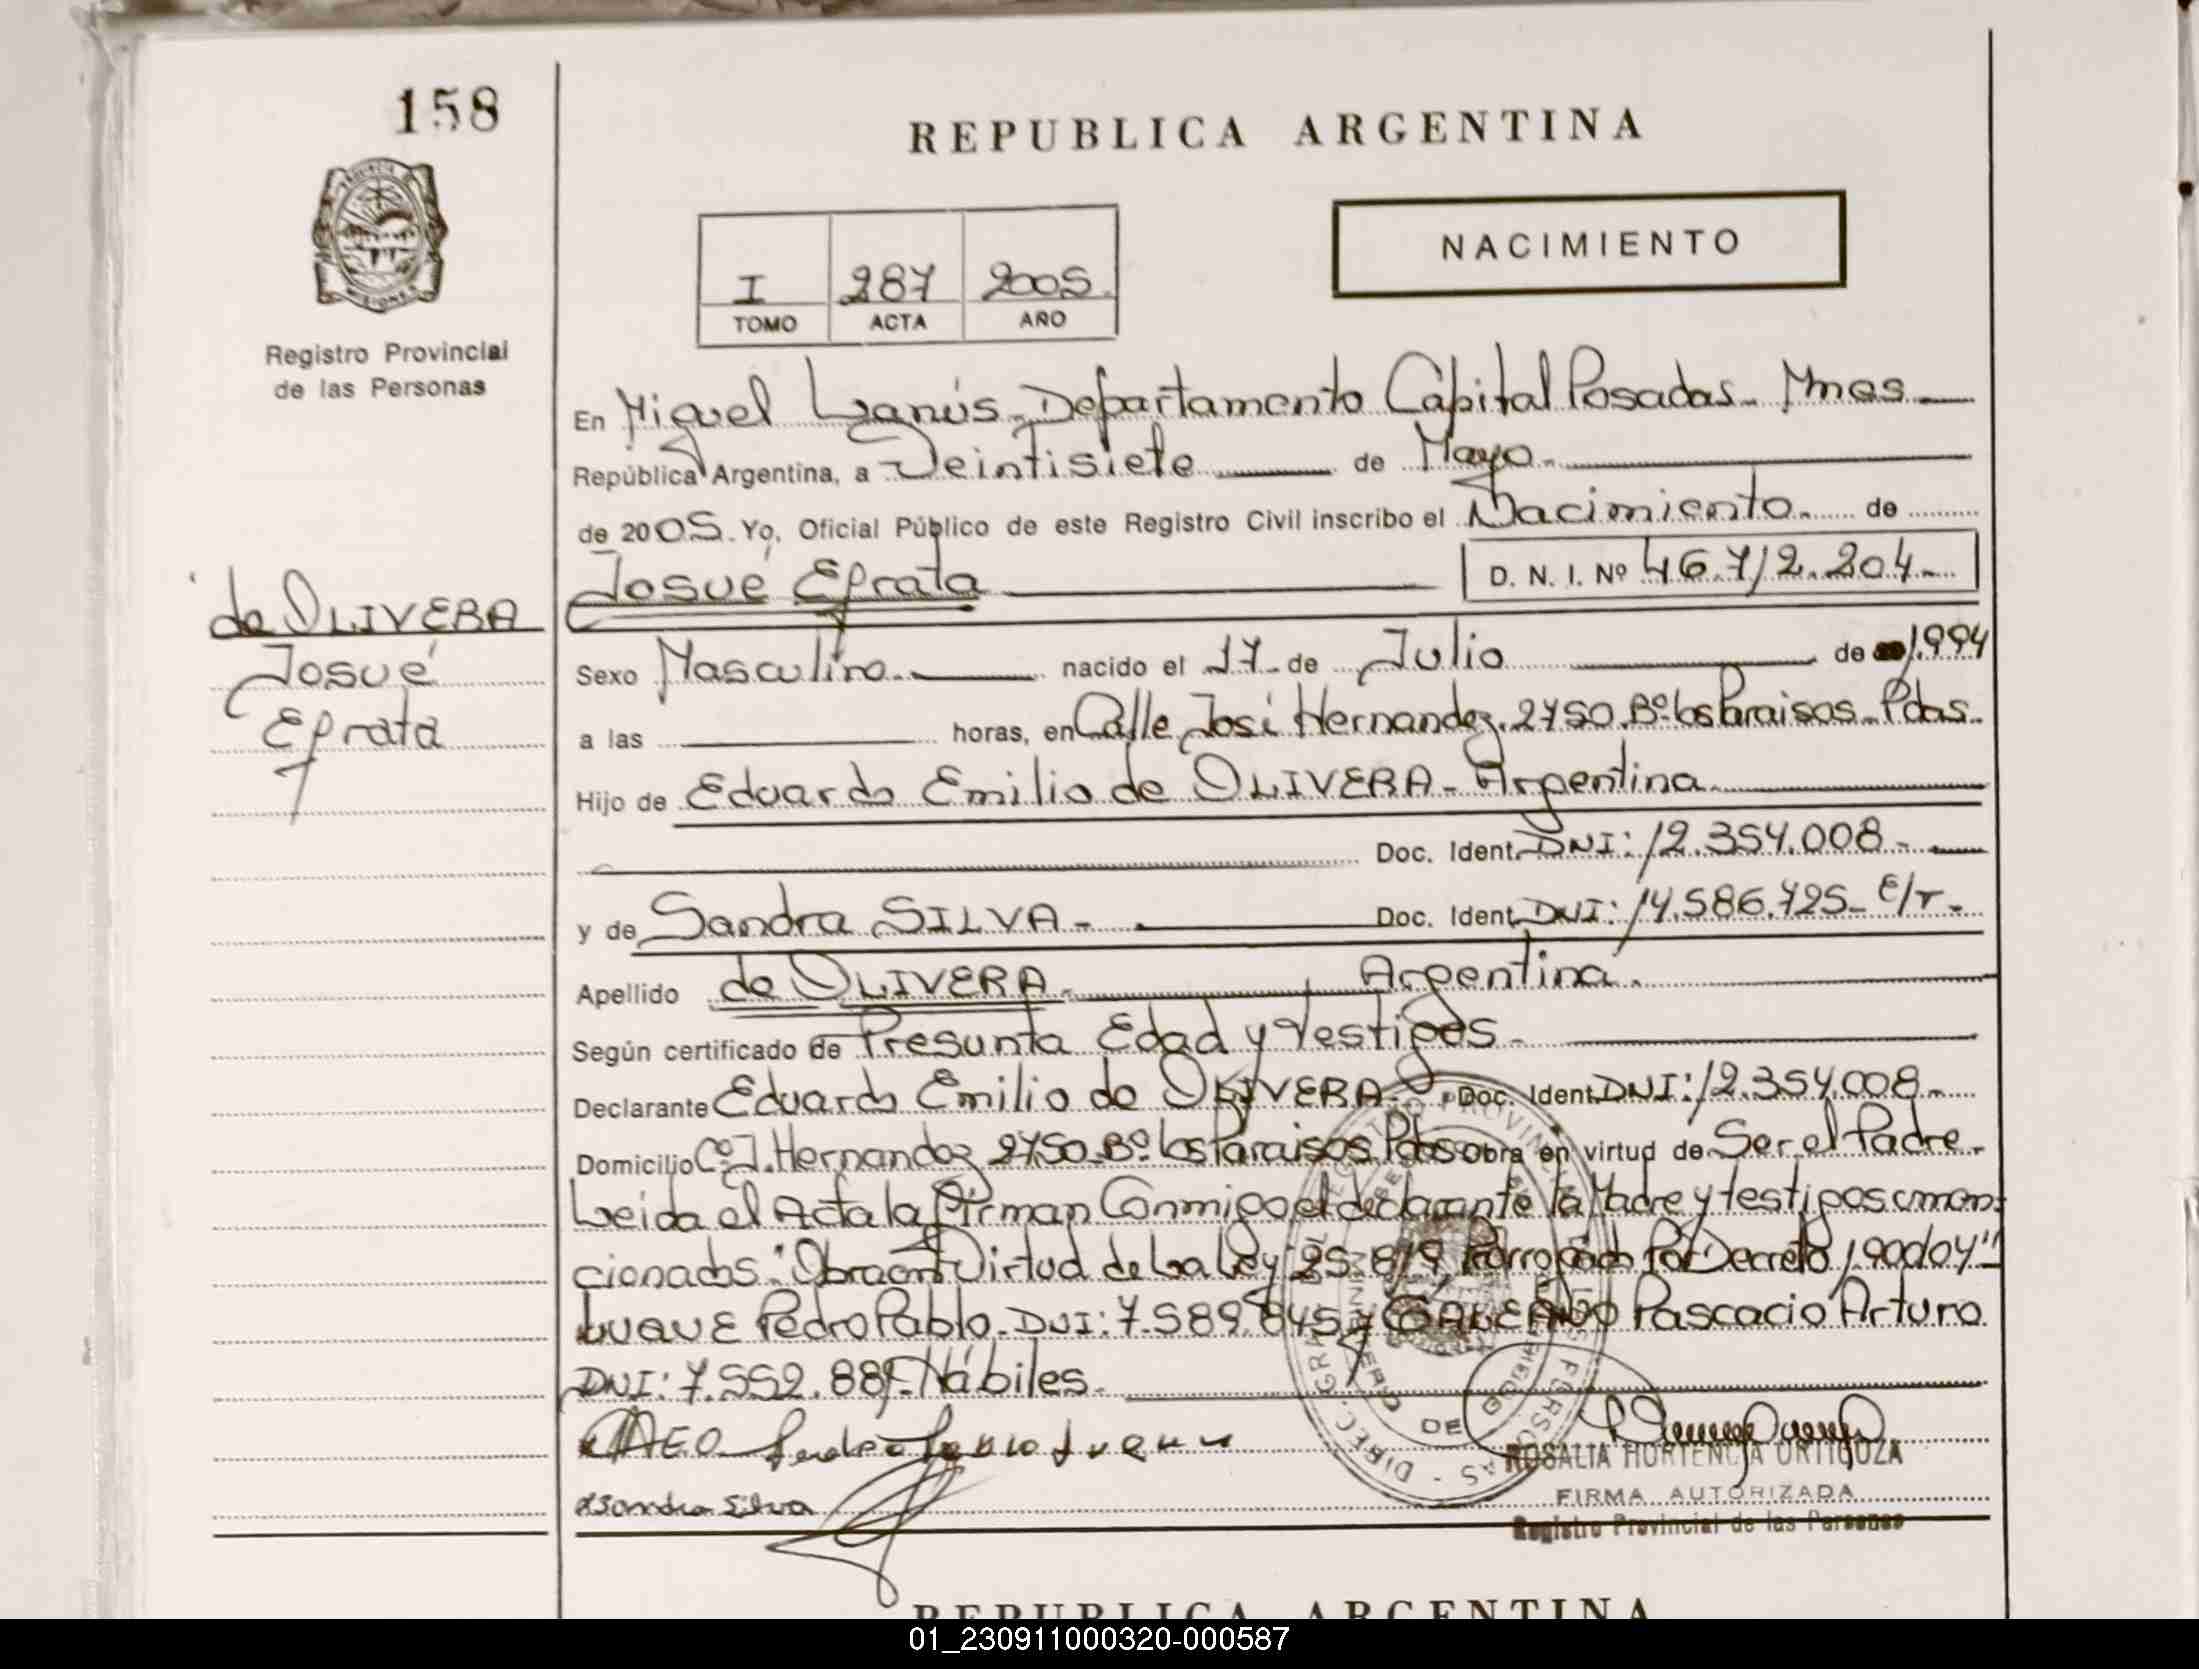 158
REPUBLICA ARGENTINA
NACIMIENTO
I 287 2005.
TOMO ACTA AÑO
PROVINCIA DE MISIONES
Registro Provincial
de las Personas
En Miguel Lanús - Departamento Capital Posadas - Mnes
República Argentina, a Veintisiete de Mayo.
de 2005. Yo, Oficial Público de este Registro Civil inscribo el Nacimiento. de
Josué Efrata D. N. I. Nº 46.712.204.-
de OLIVERA
Josué
Efrata
Sexo Masculino. nacido el 17 de Julio de 1.994
a las horas, en Calle José Hernandez. 2750. Bº los Paraisos - Pdas.
Hijo de Eduardo Emilio de OLIVERA - Argentina.
Doc. Ident. DNI: 12.354.008.-
y de Sandra SILVA.- Doc. Ident. DNI: 14.586.725- C/r.-
Apellido de OLIVERA.- Argentina.
Según certificado de Presunta Edad y Testigos.-
Declarante Eduardo Emilio de OLIVERA.- Doc. Ident. DNI: 12.354.008.-
Domicilio Cº J. Hernandez 2750. Bº los Paraisos Pdas obra en virtud de Ser el Padre.
Leida el Acta la Firman Conmigo el declarante la Madre y testigos
cionados. "Obra en Virtud de La Ley 25.819, Prorrogado Por Decreto
LUQUE Pedro Pablo. DNI: 7.589.845 y GALEANO Pascacio Arturo
DNI: 7.552. Hábiles.
Pedro Pablo Luque
Sandra Silva
ROSALIA HORTENCIA ORTIGOZA
FIRMA AUTORIZADA
Registro Provincial de las Personas
REPUBLICA ARGENTINA
01_230911000320-000587